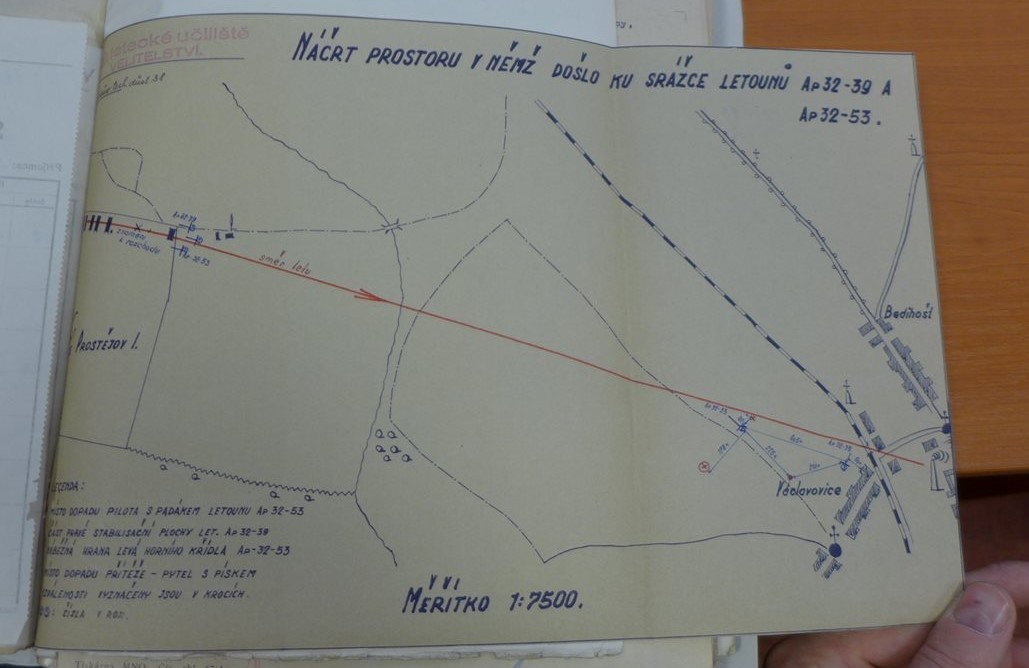 letecké učiliště
VELITELSTVÍ.
NÁČRT PROSTORU V NĚMŽ DOŠLO KU SRÁŽCE LETOUNŮ Ap 32-39 A
Ap 32-53.
Ap 32-39
znamení
k rozchodu
Ap-32-53
směr letu
PROSTĚJOV I.
Bedihošť
Ap 32-53
Ap 32-39
Václavovice
LEGENDA:
MÍSTO DOPADU PILOTA S PADÁKEM LETOUNU Ap 32-53
ČÁST PRAVÉ STABILISAČNÍ PLOCHY LET. Ap 32-39
NÁBĚŽNÁ HRANA LEVÁ HORNÍHO KŘÍDLA Ap-32-53
MÍSTO DOPADU PŘÍTĚŽE - PYTEL S PÍSKEM
VYZNAČENY JSOU V KROCÍCH.
MĚŘÍTKO 1:7500.